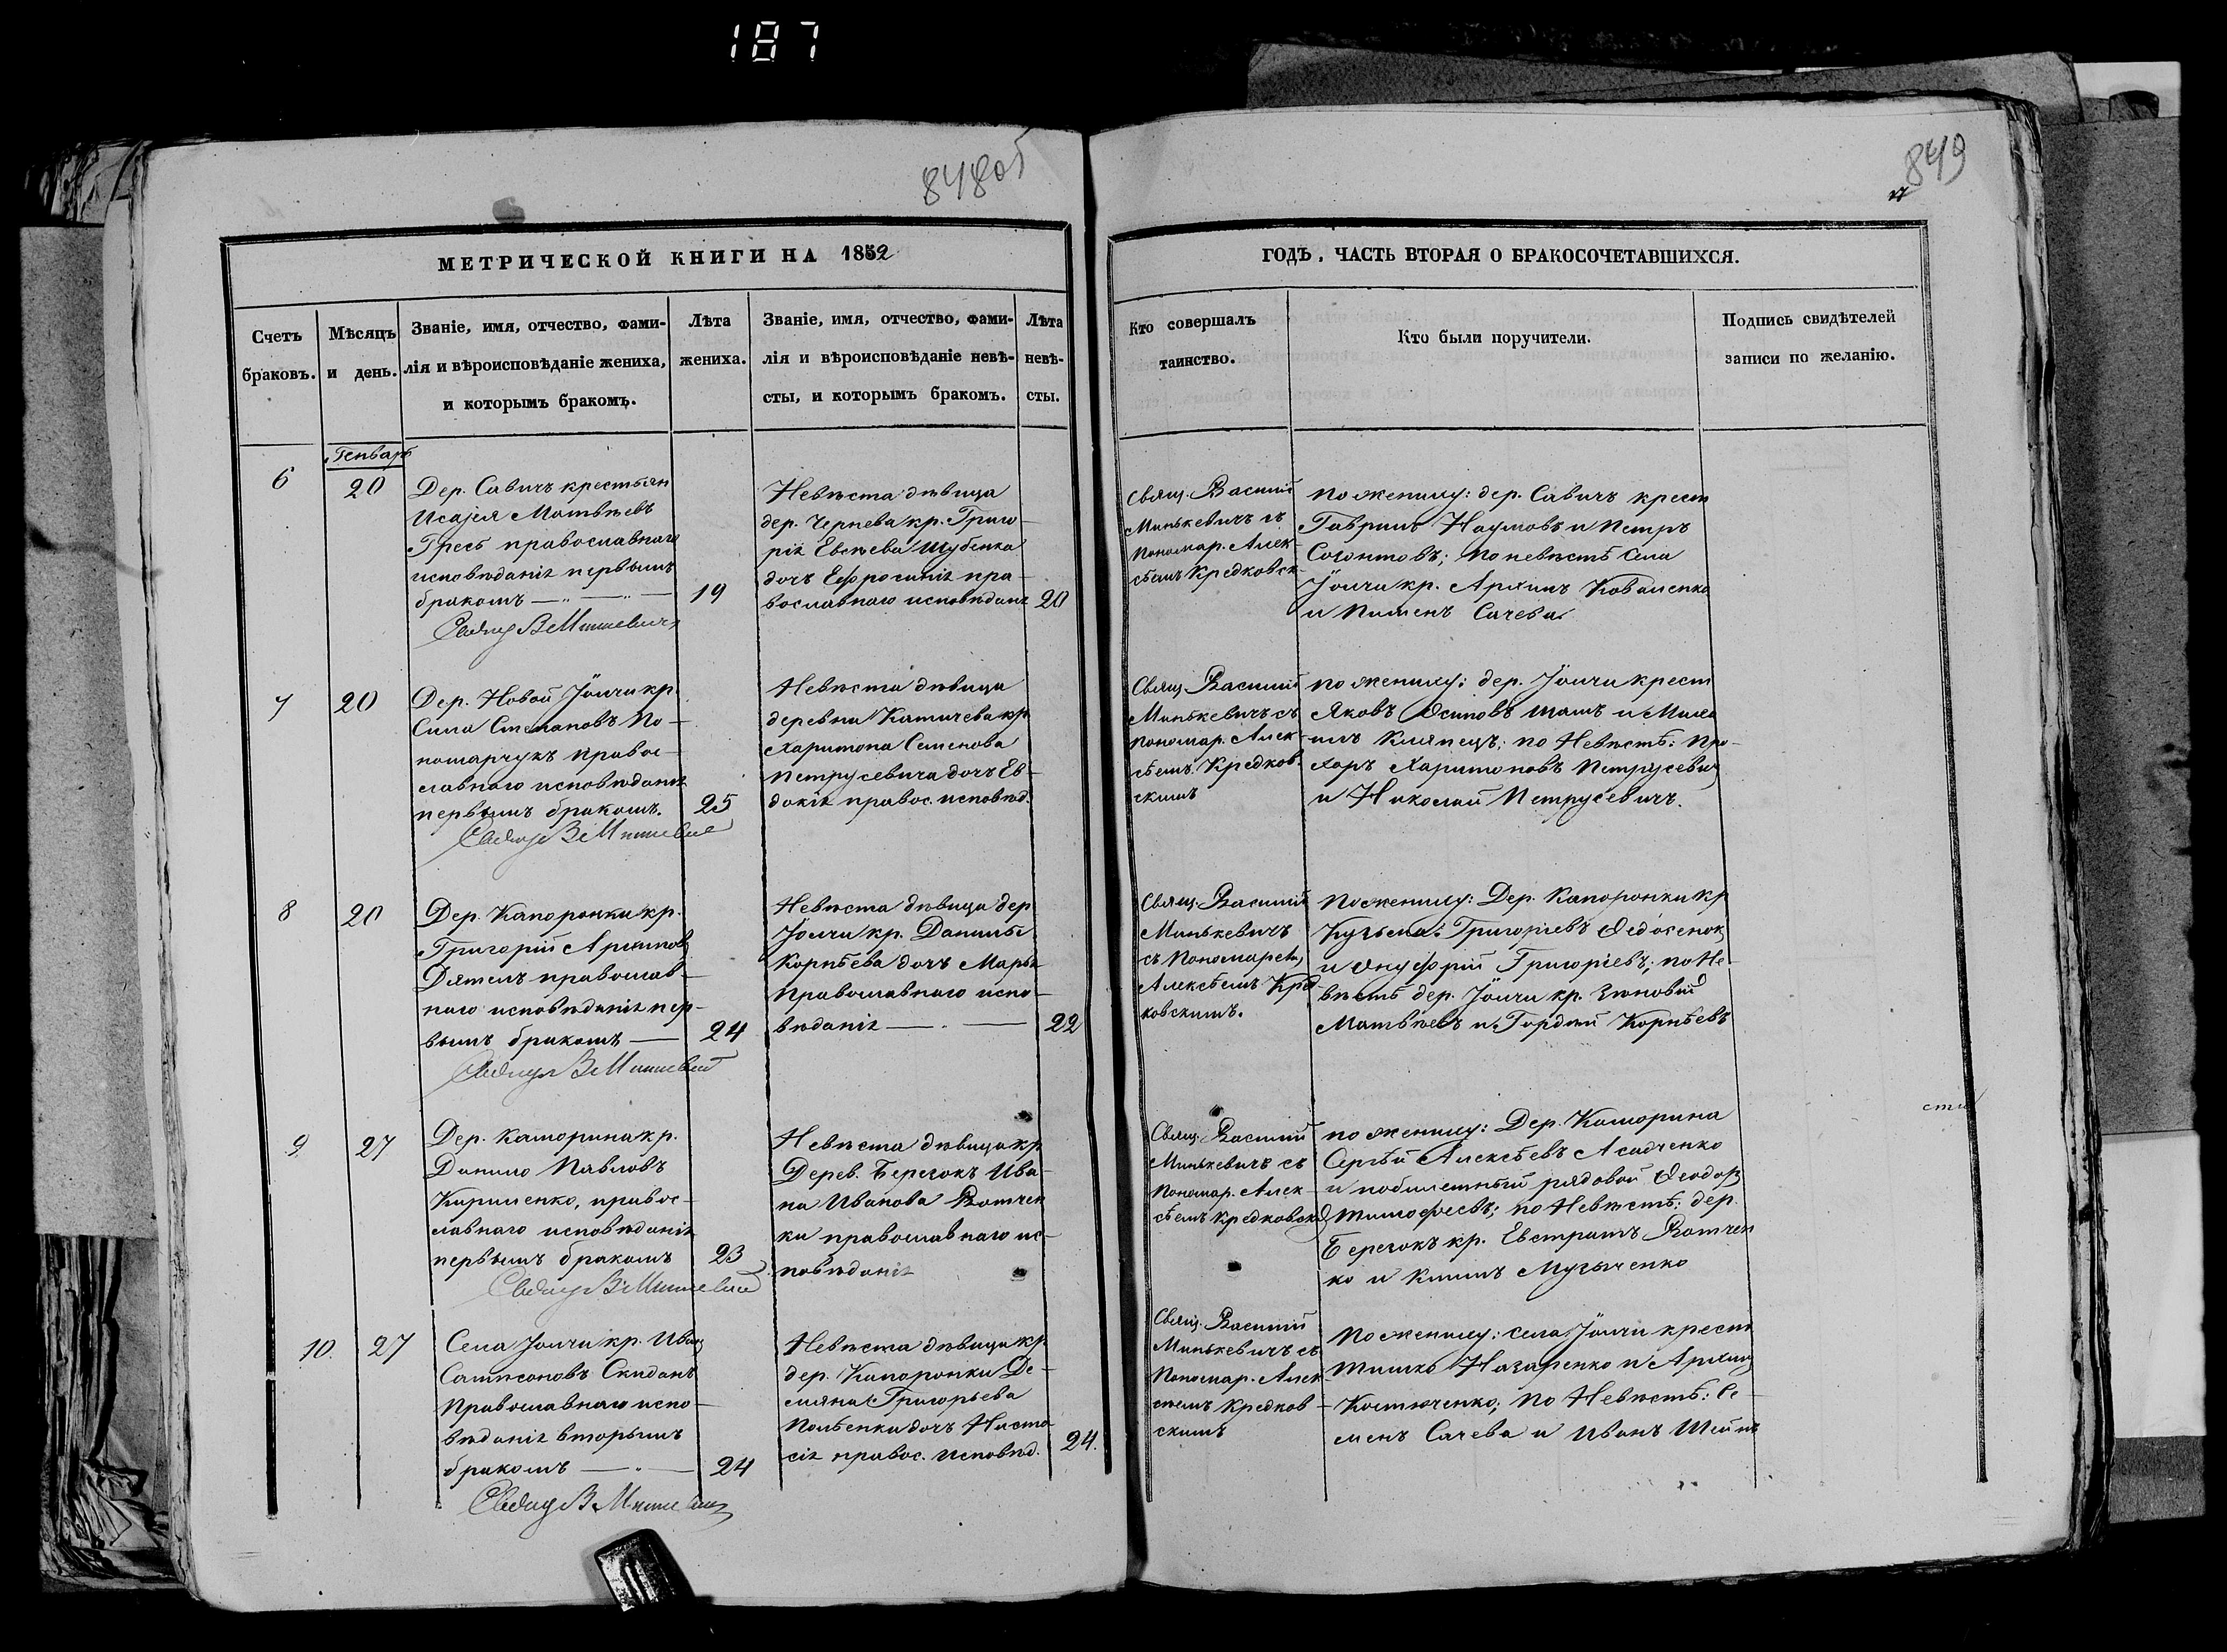 187
848об
849
МЕТРИЧЕСКОЙ КНИГИ НА 1852
ГОДЪ, ЧАСТЬ ВТОРАЯ О БРАКОСОЧЕТАВШИХСЯ.
Счетъ
браковъ.
Мѣсяцъ
и день.
Званіе, имя, отчество, фами-
лія и вѣроисповѣданіе жениха,
и которымъ бракомъ.
Лѣта
жениха.
Званіе, имя, отчество, фами-
лія и вѣроисповѣданіе невѣ-
сты, и которымъ бракомъ.
Лѣта
невѣ-
сты.
Кто совершалъ
таинство.
Кто были поручители.
Подпись свидѣтелей
записи по желанію.
Генварь
6
20
Дер. Савичъ крестьян
Исаія Матвѣевъ
Гресь православнаго
исповѣданія первымъ
бракомъ
19
Невѣста дѣвица
дер. Чернева кр. Григо-
рія Евсѣева Шубенка
дочь Ефросинія пра-
вославнаго исповѣдан
20
Свящ. Василій
Минькевичъ съ
пономар. Алек-
сѣемъ Кредковск-
по жениху: дер. Савичъ крест
Гавриилъ Наумовъ и Петръ
по невѣстѣ села
Іолчи кр. Архипъ Коваленко
и Пименъ Сачева
7
20
Дер. Новой Іолчи кр.
Сила Степановъ По-
номарчукъ правос-
лавнаго исповѣданія
первымъ бракомъ.
25
Невѣста дѣвица
деревни Катичева кр
Харитона Семенова
Петрусевича дочь Ев-
докія правос. исповѣд.
Свящ. Василій
Минькевичъ съ
пономар. Алек-
сѣемъ Кредков-
скимъ
по жениху: дер. Іолчи крест
Яковъ Осиповъ Шашъ и Миха
илъ Кляпецъ; по Невѣстѣ: Про-
хоръ Харитоновъ Петрусевич
и Николай Петрусевичъ.
8
20
Дер. Капоронки кр.
Григорій Архиповъ
Дятелъ православ-
наго исповѣданія пер-
вымъ бракомъ
24
Невѣста дѣвица дер
Іолчи кр. Данилы
Корнѣева дочь Марья
Православнаго испо-
вѣданія
22
Свящ. Василій
Минькевичъ
съ Пономарем
Алексѣемъ Кред
ковскимъ.
По жениху: Дер. Капоронки кр
Кузьма Григоріевъ Ѳедосенок
и Онуфрій Григоріевъ; по Не-
вѣстѣ дер. Іолчи кр. Зиновій
Матвѣевъ и Гордѣй Корнѣевъ
9
27
Дер. Каморина кр.
Данило Павловъ
Кириленко, правос-
лавнаго исповѣданія
первымъ бракомъ
23
Невѣста дѣвица кр
Дерев. Берегокъ Ива-
на Иванова Вотчен
ки православнаго ис-
повѣданія
Свящ. Василій
Минькевичъ съ
Пономар. Алек-
сѣемъ Кредковск
по жениху: Дер. Каморина
Сергѣй Алексѣевъ Асадченко
и побилетный рядовой Ѳеодоръ
Тимофеевъ; по Невѣстѣ: дер.
Берегокъ кр. Евстратъ Вотчен
ко и Климъ Музыченко
сти
10.
27
Села Іолчи кр. Иванъ
Сампсоновъ Скиданъ
Православнаго испо-
вѣданія вторымъ
бракомъ
24
Невѣста дѣвица кр.
дер. Капоронки Де-
мьяна Григорьева
Полѣенки дочь Наста-
сія правос. исповѣд.
24.
Свящ. Василій
Минькевичъ съ
Пономар. Алек-
сѣемъ Кредков-
скимъ
По жениху: села Іолчи крест
Тишко Назаренко и Архипъ
Костюченко; по Невѣстѣ: Се-
менъ Сачева и Иванъ